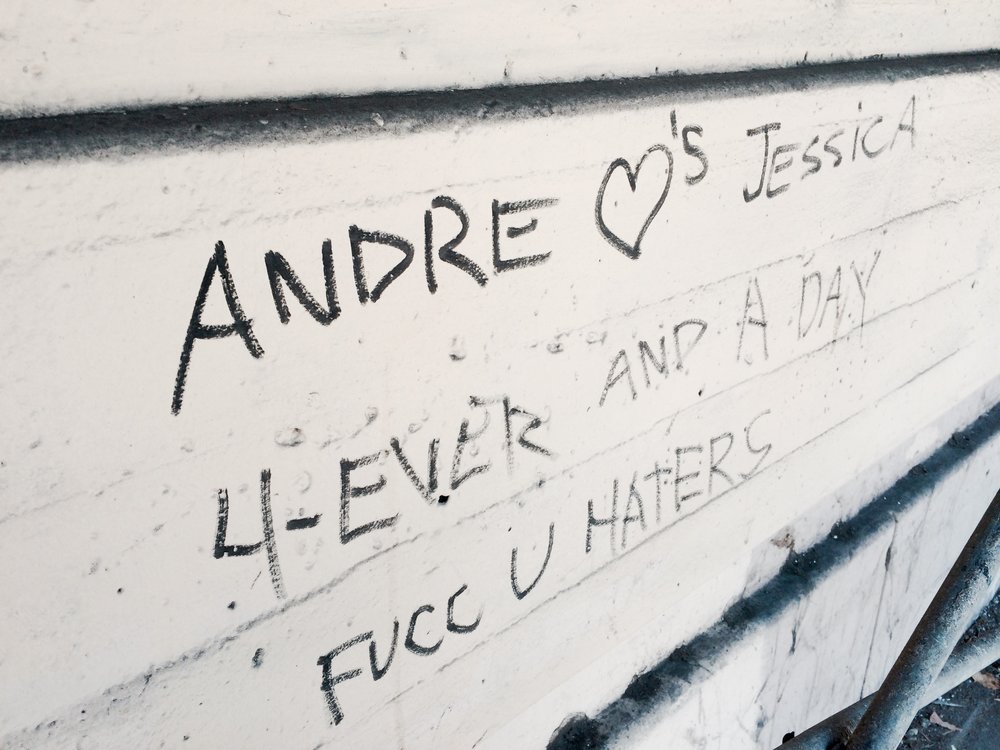 ANDRE ♡'S JESSICA
4-EVER AND A DAY
FUCC U HATERS